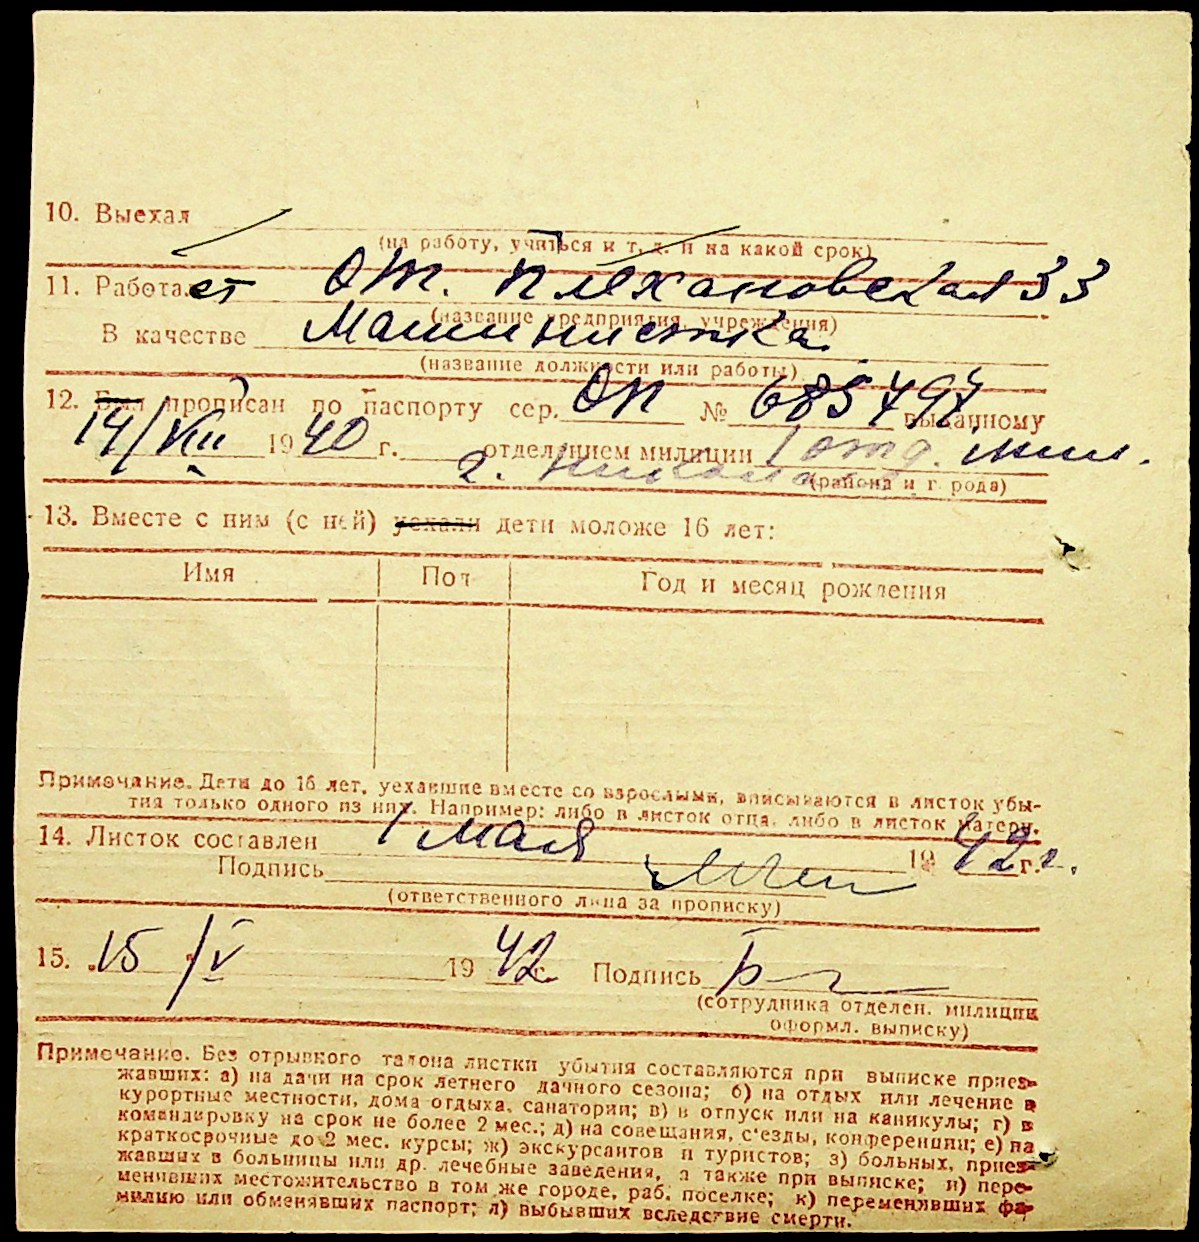 10. Выехал
(на работу, учиться и т. д. и на какой срок)
11. Работает от. Плехановская 33
(название предприятия, учреждения)
В качестве Машинистка.
(название должности или работы)
12. Был прописан по паспорту сер. ОП № 685797 выданному
14/VIII 1940 г. отделением милиции 1 отд. мил.
г.
(района и города)
13. Вместе с ним (с ней) уехали дети моложе 16 лет:
Имя Пол Год и месяц рождения
Примечание. Дети до 16 лет, уехавшие вместе со взрослыми, вписываются в листок убы-
тия только одного из них. Например: либо в листок отца, либо в листок матери.
14. Листок составлен 1 мая 1942 г.
Подпись
(ответственного лица за прописку)
15. 15/V 1942 г. Подпись
(сотрудника отделен. милиции
оформл. выписку)
Примечание. Без отрывного талона листки убытия составляются при выписке приез-
жавших: а) на дачи на срок летнего дачного сезона; б) на отдых или лечение в
курортные местности, дома отдыха, санатории; в) в отпуск или на каникулы; г) в
командировку на срок не более 2 мес.; д) на совещания, с'езды, конференции; е) на
краткосрочные до 2 мес. курсы; ж) экскурсантов и туристов; з) больных, приез-
жавших в больницы или др. лечебные заведения, а также при выписке; и) пере-
менивших местожительство в том же городе, раб. поселке; к) переменивших фа-
милию или обменявших паспорт; л) выбывших вследствие смерти.